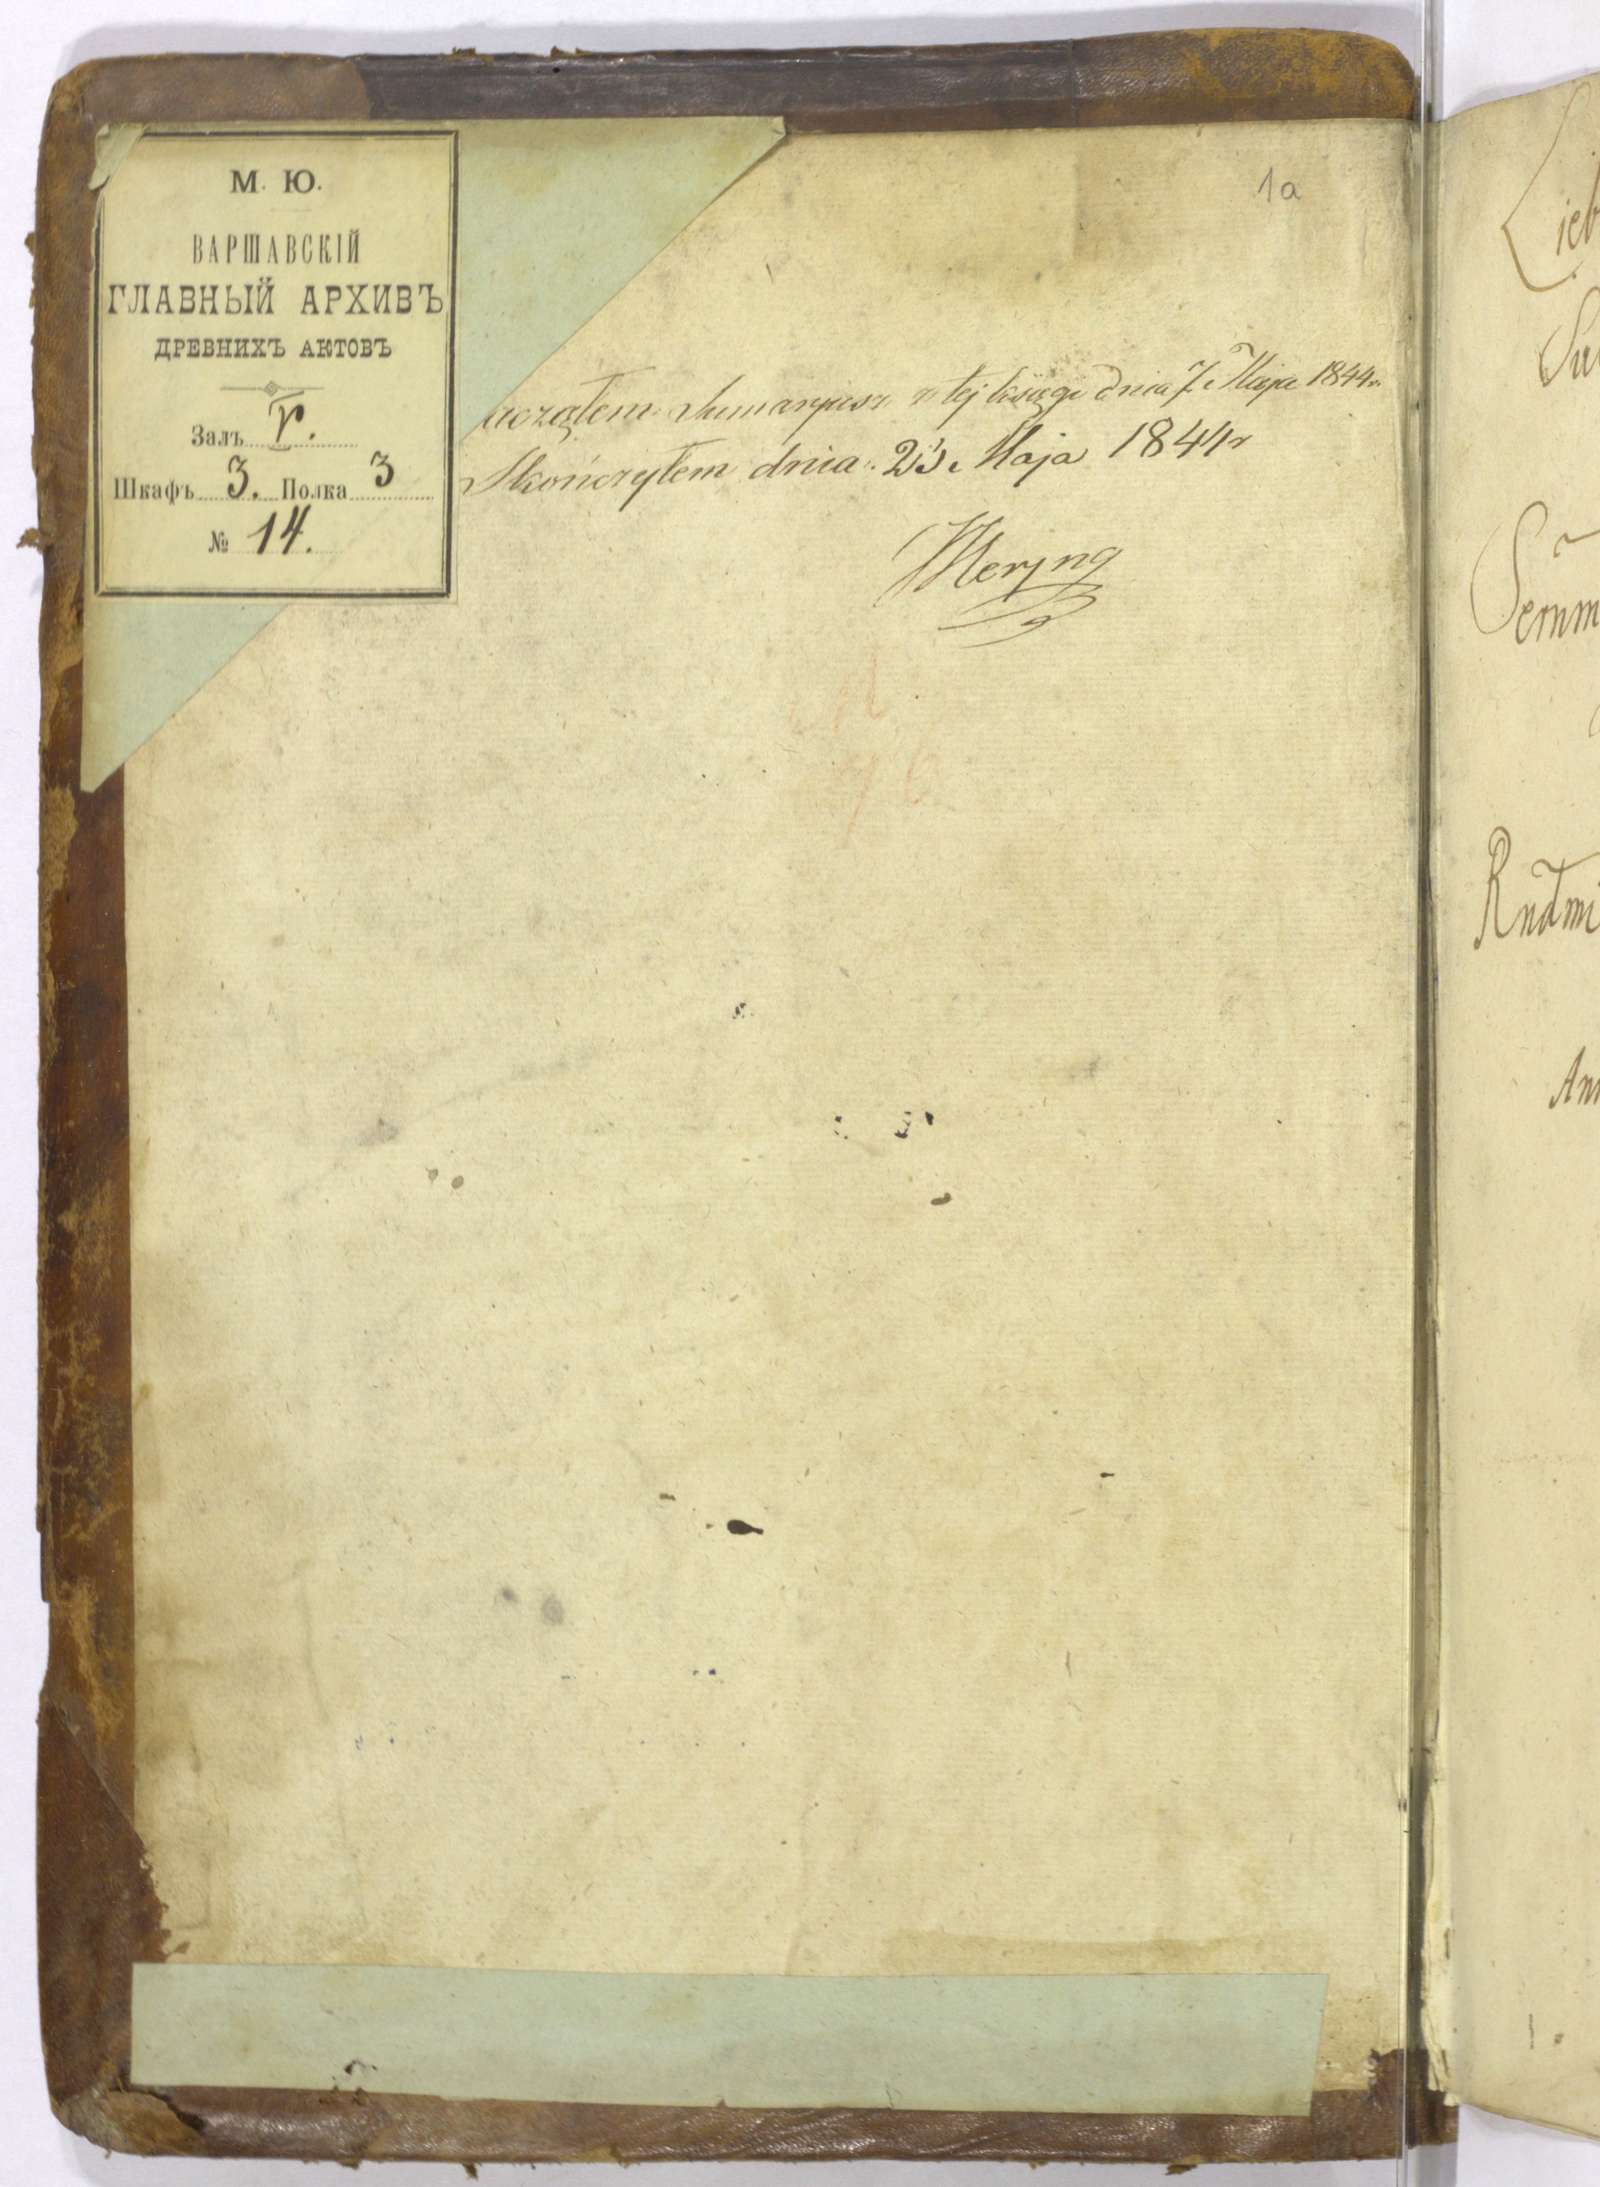 М. Ю.
ВАРШАВСКІЙ
ГЛАВНЫЙ АРХИВЪ
ДРЕВНИХЪ АКТОВЪ
Залъ V.
Шкафъ 3. Полка 3
№ 14.
1a
acząłem Sumaryusz z tej księgi dnia 7 Maja 1844r.
Skończyłem dnia 23 Maja 1844r
Heryng
Lieb
Rndmi